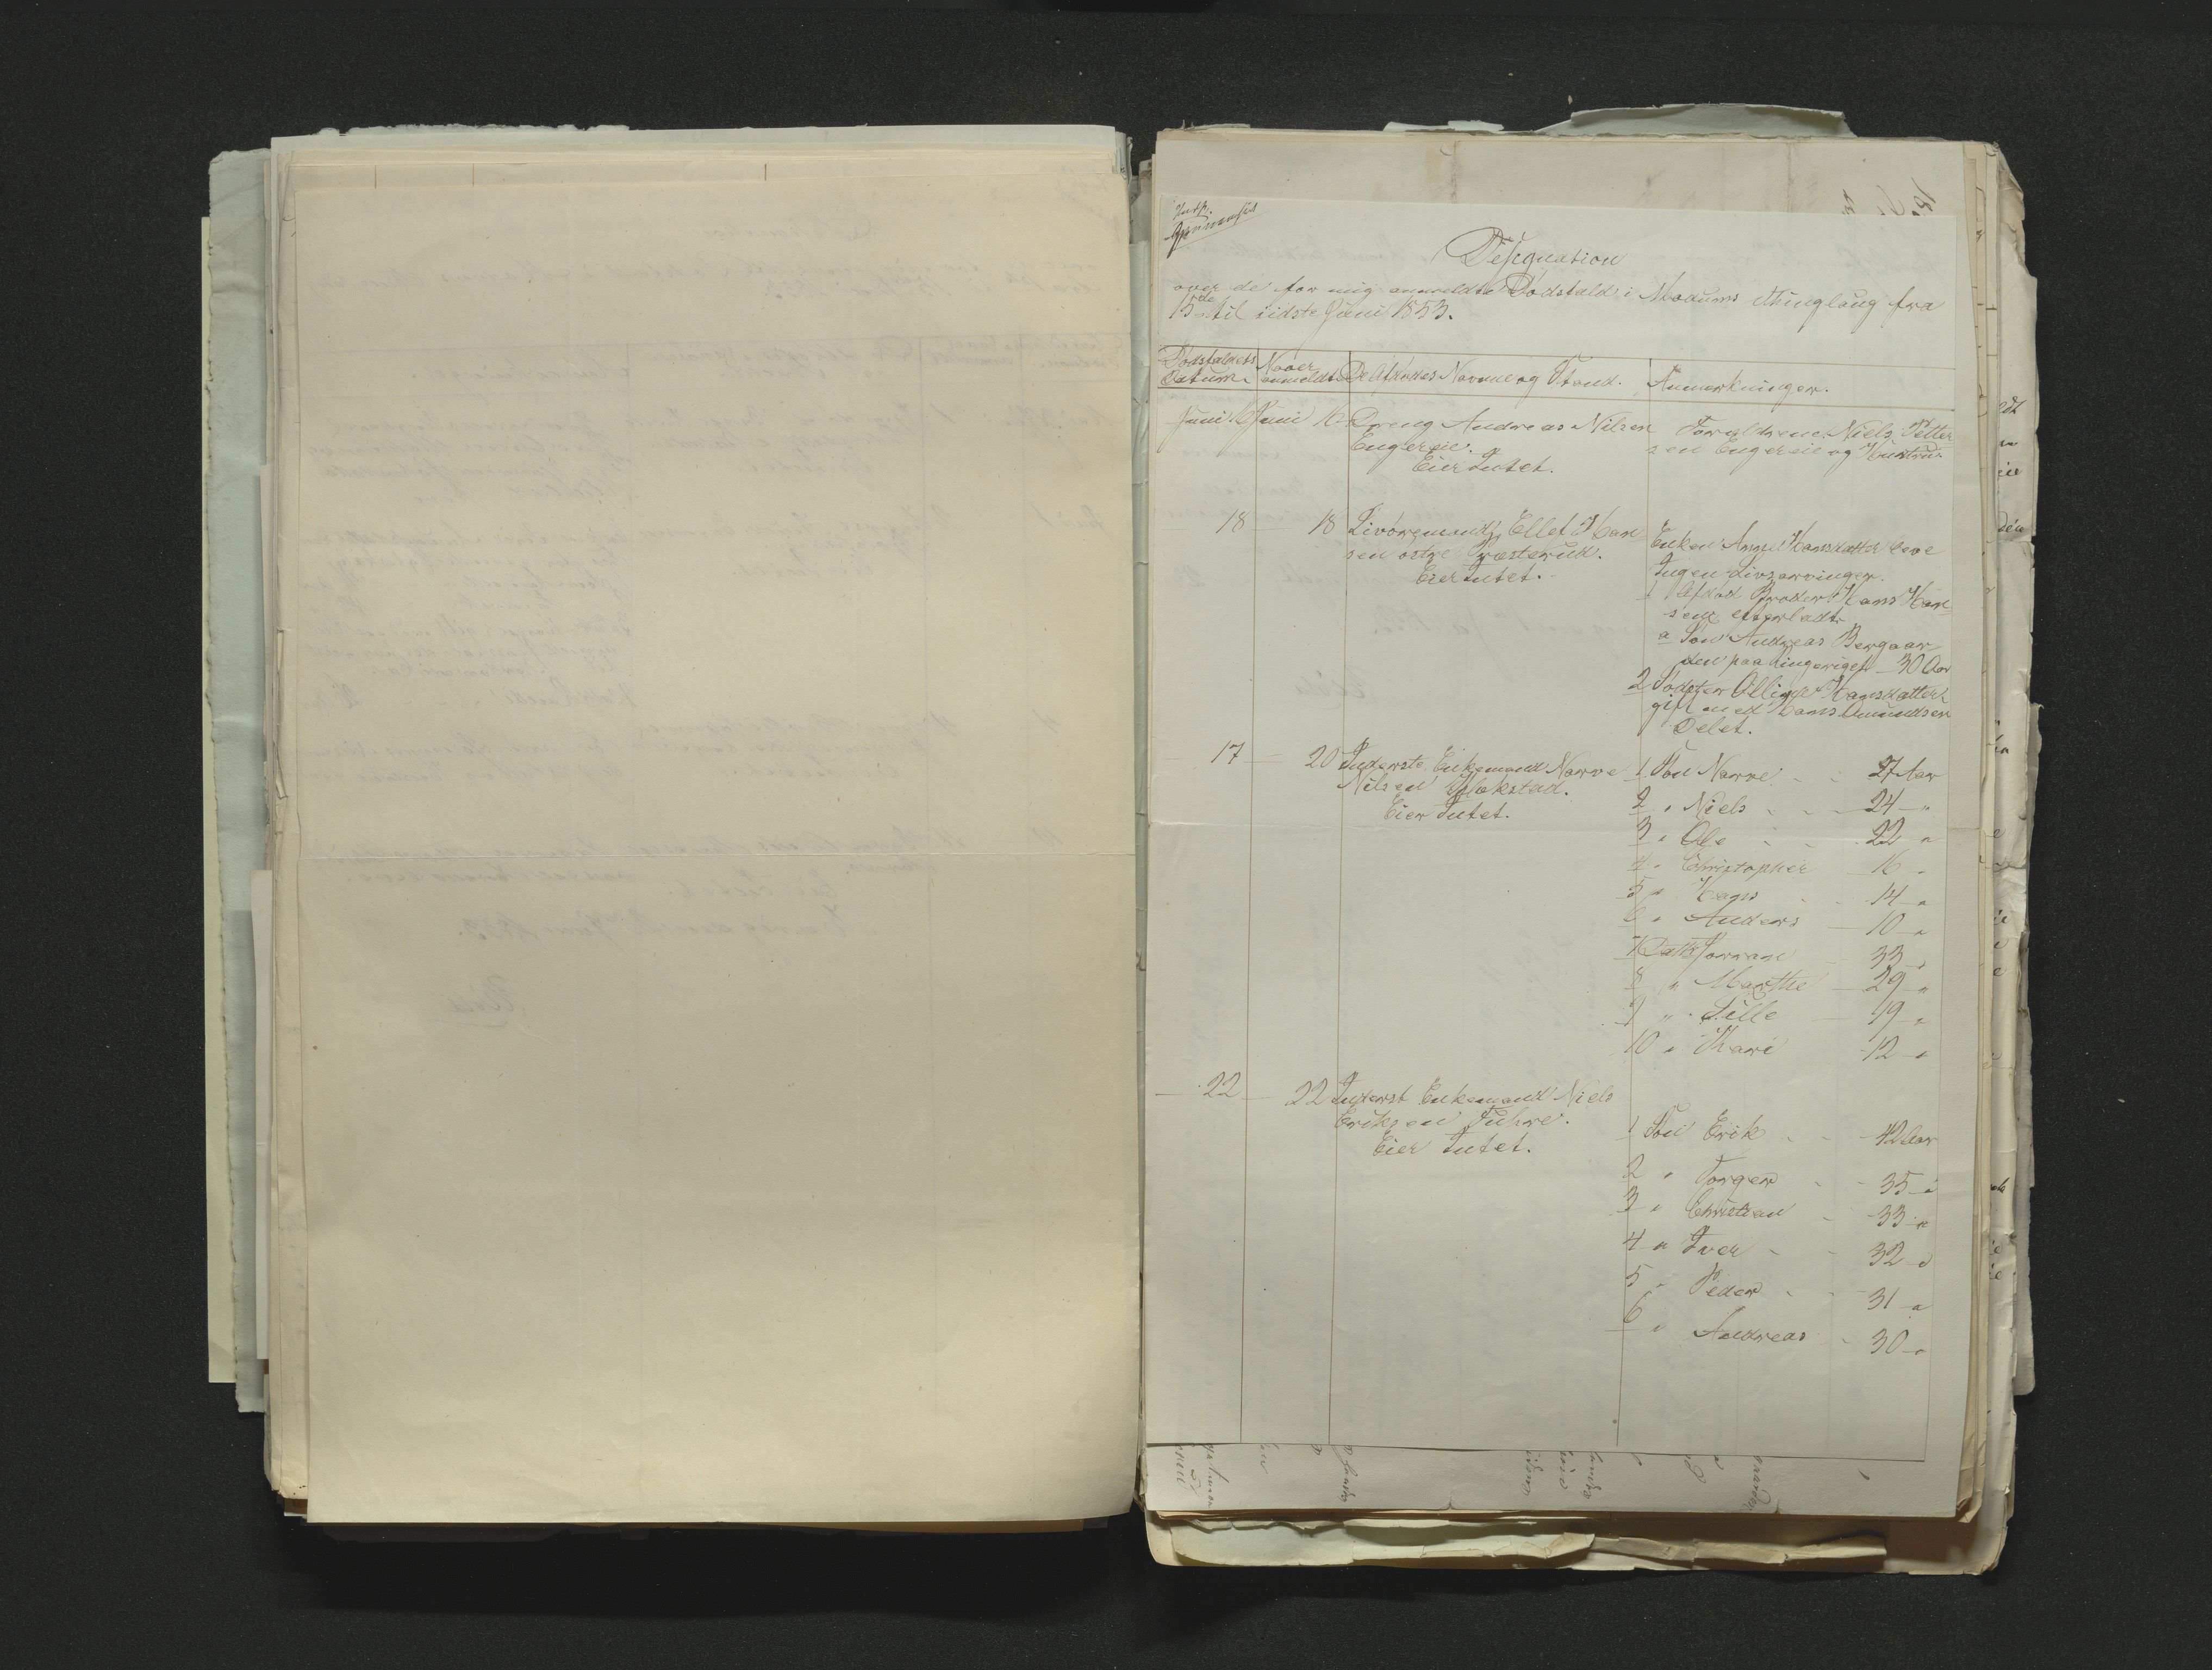 Designation
over de for mig anmeldte Dödsfald i Modums Thinglaug fra
15de til sidste Juni 1853.
Dödsfaldets Datum. Naaer anmeldte De Afdödes Navne og Stand. Anmerkninger.
Juni 6 Juni 16 Dreng Andreas Nilsen
Engereie.
Eier Intet.
Foreldrene Niels Petter
sen Engereie og Hustru.
18 18 Livöremand Ellef Han
sen östre Præsterud.
Eier Intet.
Enken Anne Hansdatter leve
Ingen Livsarvinger.
1 Afdöd Broder Hans Han
sens efterladte
a Sön Andreas Bergaar
den paa Ringeriget 30 Aar
2 Södster Olliga Hansdatter
gift med Hans Amundsen
Delet.
17 20 Inderste Enkemand Narve
Nilsen Blokstad.
Eier Intet.
1 Sön Narve 27 Aar
2 " Niels 24 "
3 " Ole 22 "
4 " Christopher 16 "
5 " Hans 14 "
6 " Anders 10 "
7 Datt Jorran 33 "
8 " Marthe 29 "
9 " Sille 19 "
10 " Kari 12 "
22 22 Inderst Enkemand Niels
Eriksen Fuhre.
Eier Intet.
1 Sön Erik 42 Aar
2 " Torger 35 "
3 " Christian 33 "
4 " Iver 32 "
5 " Peder 31 "
6 " Andreas 30 "